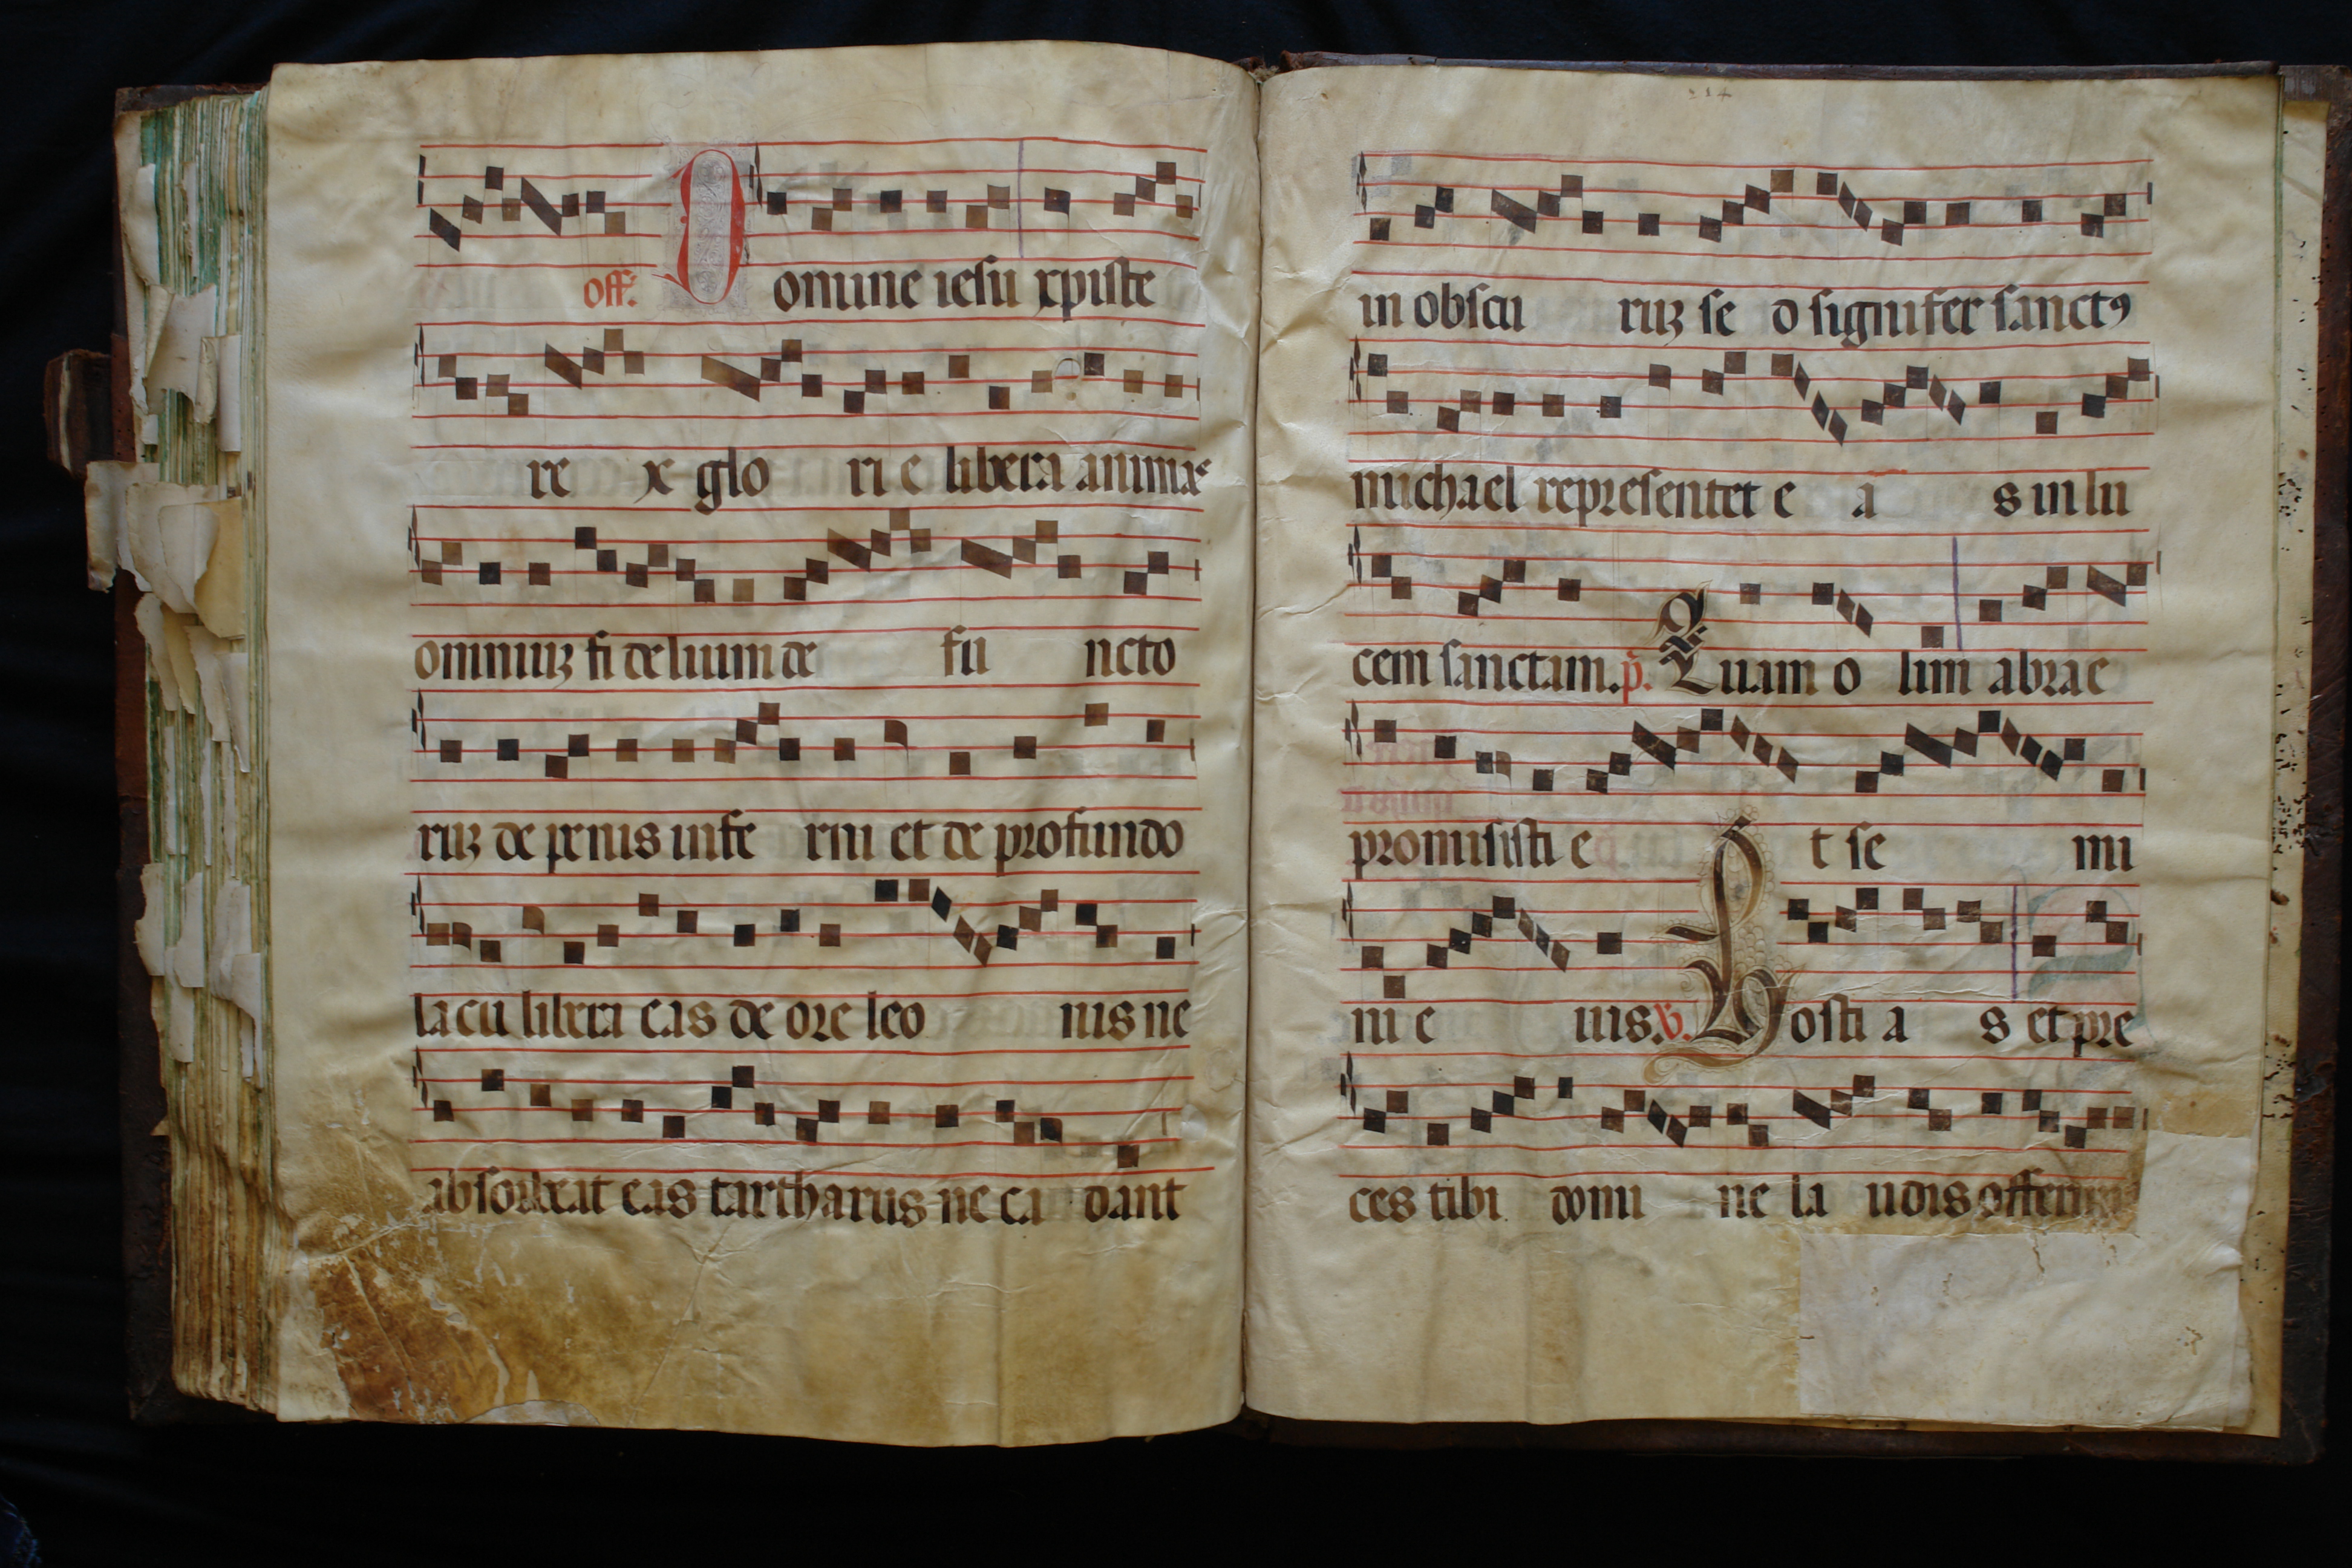 off. Domine iesu xpiste
re x glo ri e libera animae
omniuꝫ fi delium de fu ncto
ruꝫ de penis infe rni et de profundo
lacu libera eas de ore leo nis ne
absorbeat eas tartharus ne ca dant
in obscu ruꝫ se d signifer sanctꝰ
michael representet e a s in lu
cem sanctam. p̄. Quam o lim abrae
promisisti e t se mi
ni e ius. v. Hosti a s et pre
ces tibi domi ne la udis offerim